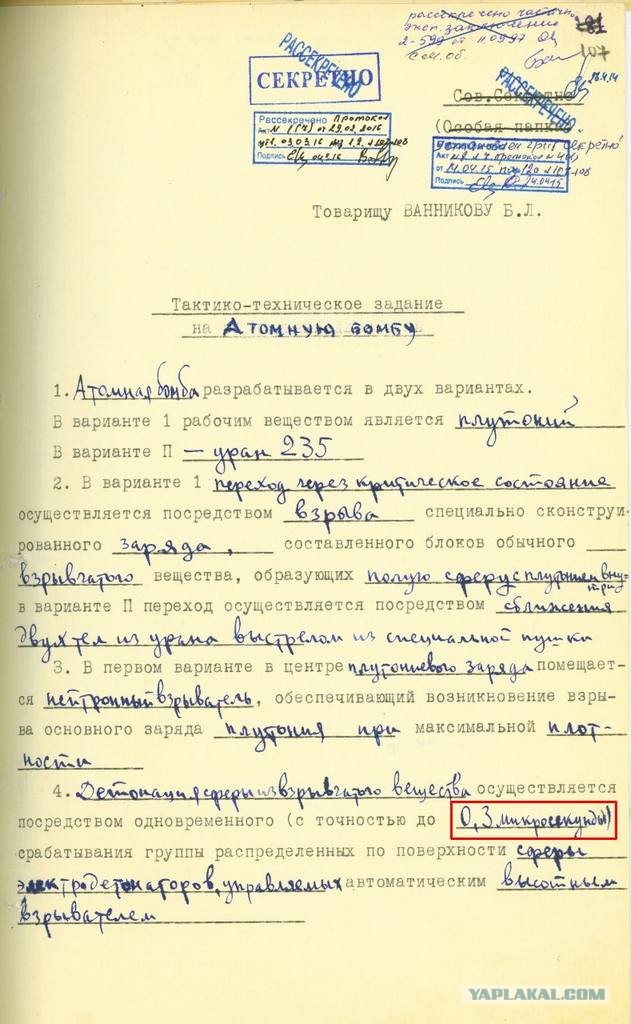 рассекречено частично
эксп. заключение
2-599 от 11.0997
181
107
РАССЕКРЕЧЕНО
СЕКРЕТНО
Рассекречено Протокол
Акт № 1 (СЧ) от 29.02.2016
Подпись
РАССЕКРЕЧЕНО
Сов.Секретно
(Особая папка)
Акт
Подпись 24.04.15
Товарищу ВАННИКОВУ Б.Л.
Тактико-техническое задание
на Атомную бомбу
1. Атомная бомба разрабатывается в двух вариантах.
В варианте 1 рабочим веществом является плутоний,
В варианте П – уран 235
2. В варианте 1 переход через критическое состояние
осуществляется посредством взрыва специально сконструи-
рованного заряда, составленного блоков обычного
взрывчатого вещества, образующих полую сферу с плутонием внутри
в варианте П переход осуществляется посредством сближения
двух тел из урана выстрелом из специальной пушки
3. В первом варианте в центре плутониевого заряда помещает-
ся нейтронный взрыватель, обеспечивающий возникновение взры-
ва основного заряда плутония при максимальной плот-
ности
4. Детонация сферы из взрывчатого вещества осуществляется
посредством одновременного (с точностью до 0,3 микросекунды)
срабатывания группы распределенных по поверхности сферы
электродетонаторов, управляемых автоматическим высотным
взрывателем
YAPLAKAL.COM